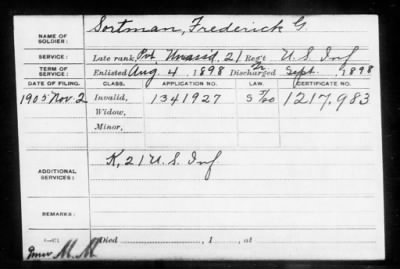 NAME OF SOLDIER: Sortman, Frederick G.
SERVICE: Late rank Pvt Unassd. 21 Reg't U.S. Inf
TERM OF SERVICE: Enlisted Aug. 4, 1898 Discharged Sept. , 1898
DATE OF FILING. CLASS. APPLICATION NO. LAW. CERTIFICATE NO.
1905 Nov. 2 Invalid, 1341927 1217,983
Widow,
Minor,
ADDITIONAL SERVICES: K, 21 U.S. Inf
REMARKS:
Died , 1 , at
M. M.